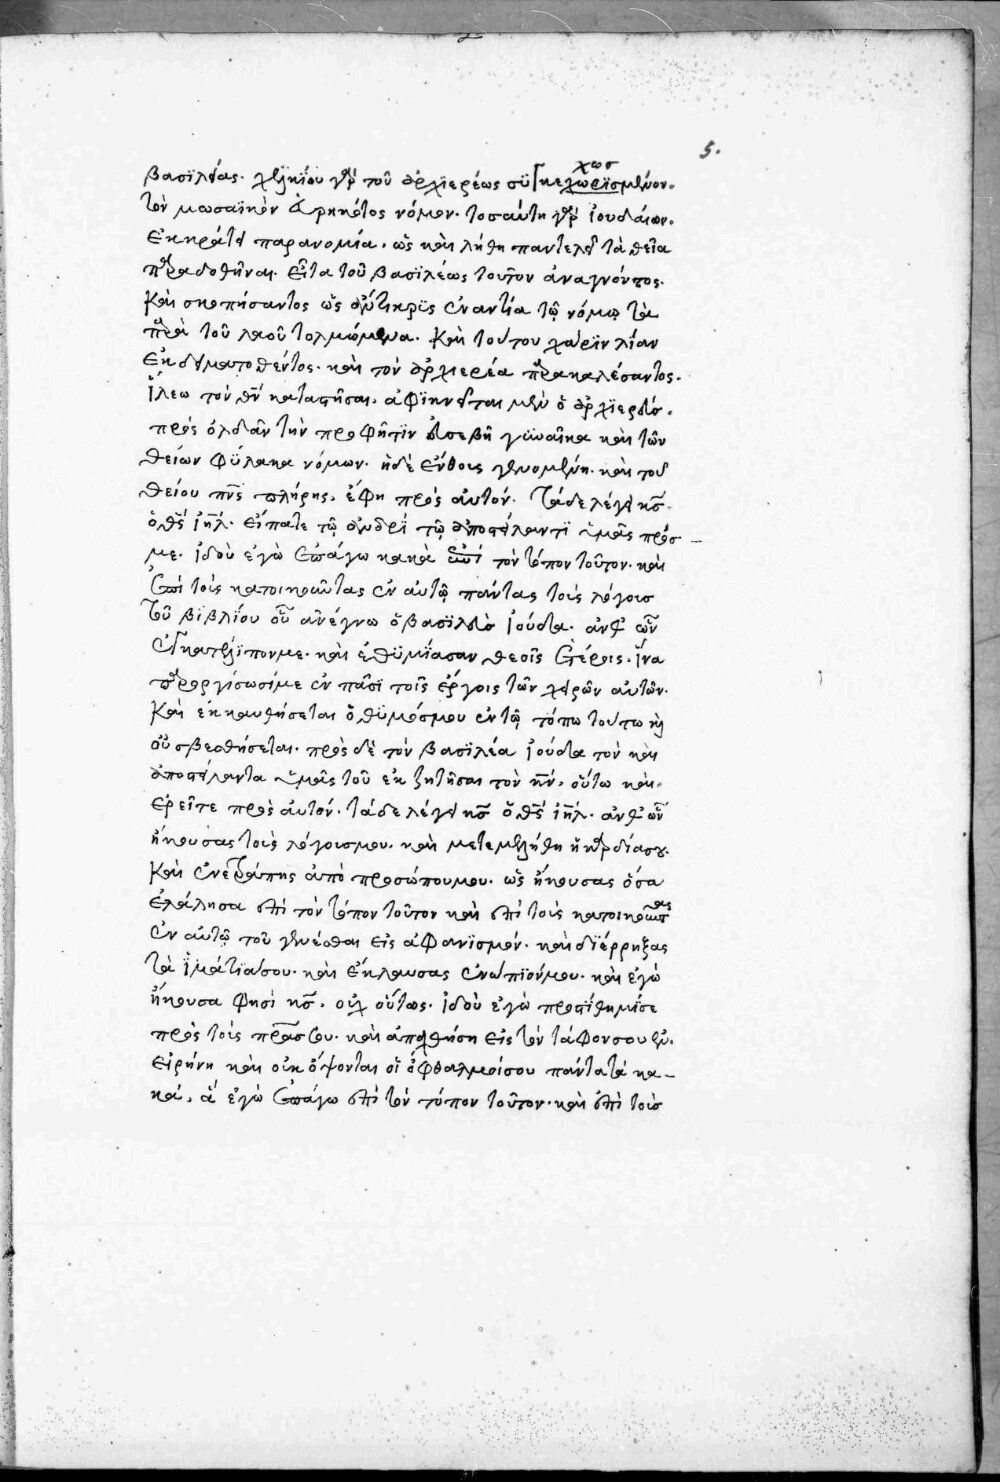 5.
χωσ
βασϊλείας. χελκίου γὰρ τοῦ ἀρχϊερέως συγκεχωρϊσμένον.
τὸν μωσαϊκὸν εὑρηκότος νόμον. τοσαύτη γὰρ ἰουδαίων.
ἐκράτει παρανομία. ὡς καὶ λήθη παντελεῖ τὰ θεῖα
παραδοθῆναι. εἶτα τοῦ βασϊλέως τοῦτον ἀναγνόντος.
καὶ σκοπήσαντος ὡς ἄντικρϊς ἐναντία τῶ νόμω τὰ
παρὰ τοῦ λαοῦ τολμώμενα. καὶ τούτου χάρϊν λίαν
ἐκδειματοθέντος. καὶ τὸν ἀρχιερέα παρακαλέσαντος.
ἵλεω τὸν θν καταστῆσαι. ἀφϊκνεῖται μὲν ὁ ἀρχϊερεὺς.
πρὸς ὀλδὰν τὴν προφῆτϊν εὐσεβῆ γϋναῖκα καὶ τῶν
θείων φύλακα νόμων. ἡ δὲ ἔνθους γενομένη. καὶ τοῦ
θείου πνς πλήρης. ἔφη πρὸς αὐτόν. τάδε λέγει κς
ὁ θς ἰηλ. εἴπατε τῶ ἀνδρὶ τῶ ἀποστείλαντϊ ὑμᾶς πρός
με. ἰδοὺ ἐγὼ ἐπάγω κακὰ ἐπὶ τὸν τόπον τοῦτον. καὶ
ἐπὶ τοὺς κατοικοῦντας ἐν αὐτῶ πάντας τοὺς λόγους
τοῦ βϊβλίου οὓς ἀνέγνω ὁ βασϊλεὺς ἰούδα. ἀνθ ὧν
ἐγκατέλϊπόν με. καὶ ἐθϋμίασαν θεοῖς ἑτέροις. ἵνα
παροργίσωσί με ἐν πᾶσϊ τοῖς ἔργοις τῶν χειρῶν αὐτῶν.
καὶ ἐκκαυθήσεται ὁ θϋμός μου ἐν τῶ τόπω τούτω κ
οὐ σβεσθήσεται. πρὸς δὲ τὸν βασϊλέα ἰούδα τὸν καὶ
ἀποστείλαντα ὑμᾶς τοῦ ἐκζητῆσαι τὸν κν. οὕτω καὶ.
ἐρεῖτε πρὸς αὐτόν. τάδε λέγει κς ὁ θς ἰηλ. ἀνθ ὧν
ἤκουσας τοὺς λόγους μου. καὶ μετεμελήθη ἡ καρδία σου.
καὶ ἐνετράπης ἀπὸ προσώπου μου. ὡς ἤκουσας ὅσα
ἐλάλησα ἐπὶ τὸν τόπον τοῦτον καὶ ἐπὶ τοὺς κατοικοῦντας
ἐν αὐτῶ τοῦ γενέσθαι εἰς ἀφανισμόν. καὶ δϊέρρηξας
τὰ ἱμάτϊά σου. καὶ ἔκλαυσας ἐνώπϊόν μου. καὶ ἐγὼ
ἤκουσα φησὶ κς. οὐχ οὕτως. ἰδοὺ ἐγὼ προστίθημί σε
πρὸς τοὺς πρας σου. καὶ ἀποχθήση εἰς τὸν τάφον σου ἐν.
εἰρήνη καὶ οὐκ ὄψονται οἱ ὀφθαλμοί σου πάντα τὰ κα-
κά. ἃ ἐγὼ ἐπάγω ἐπὶ τὸν τόπον τοῦτον. καὶ ἐπὶ τοὺς